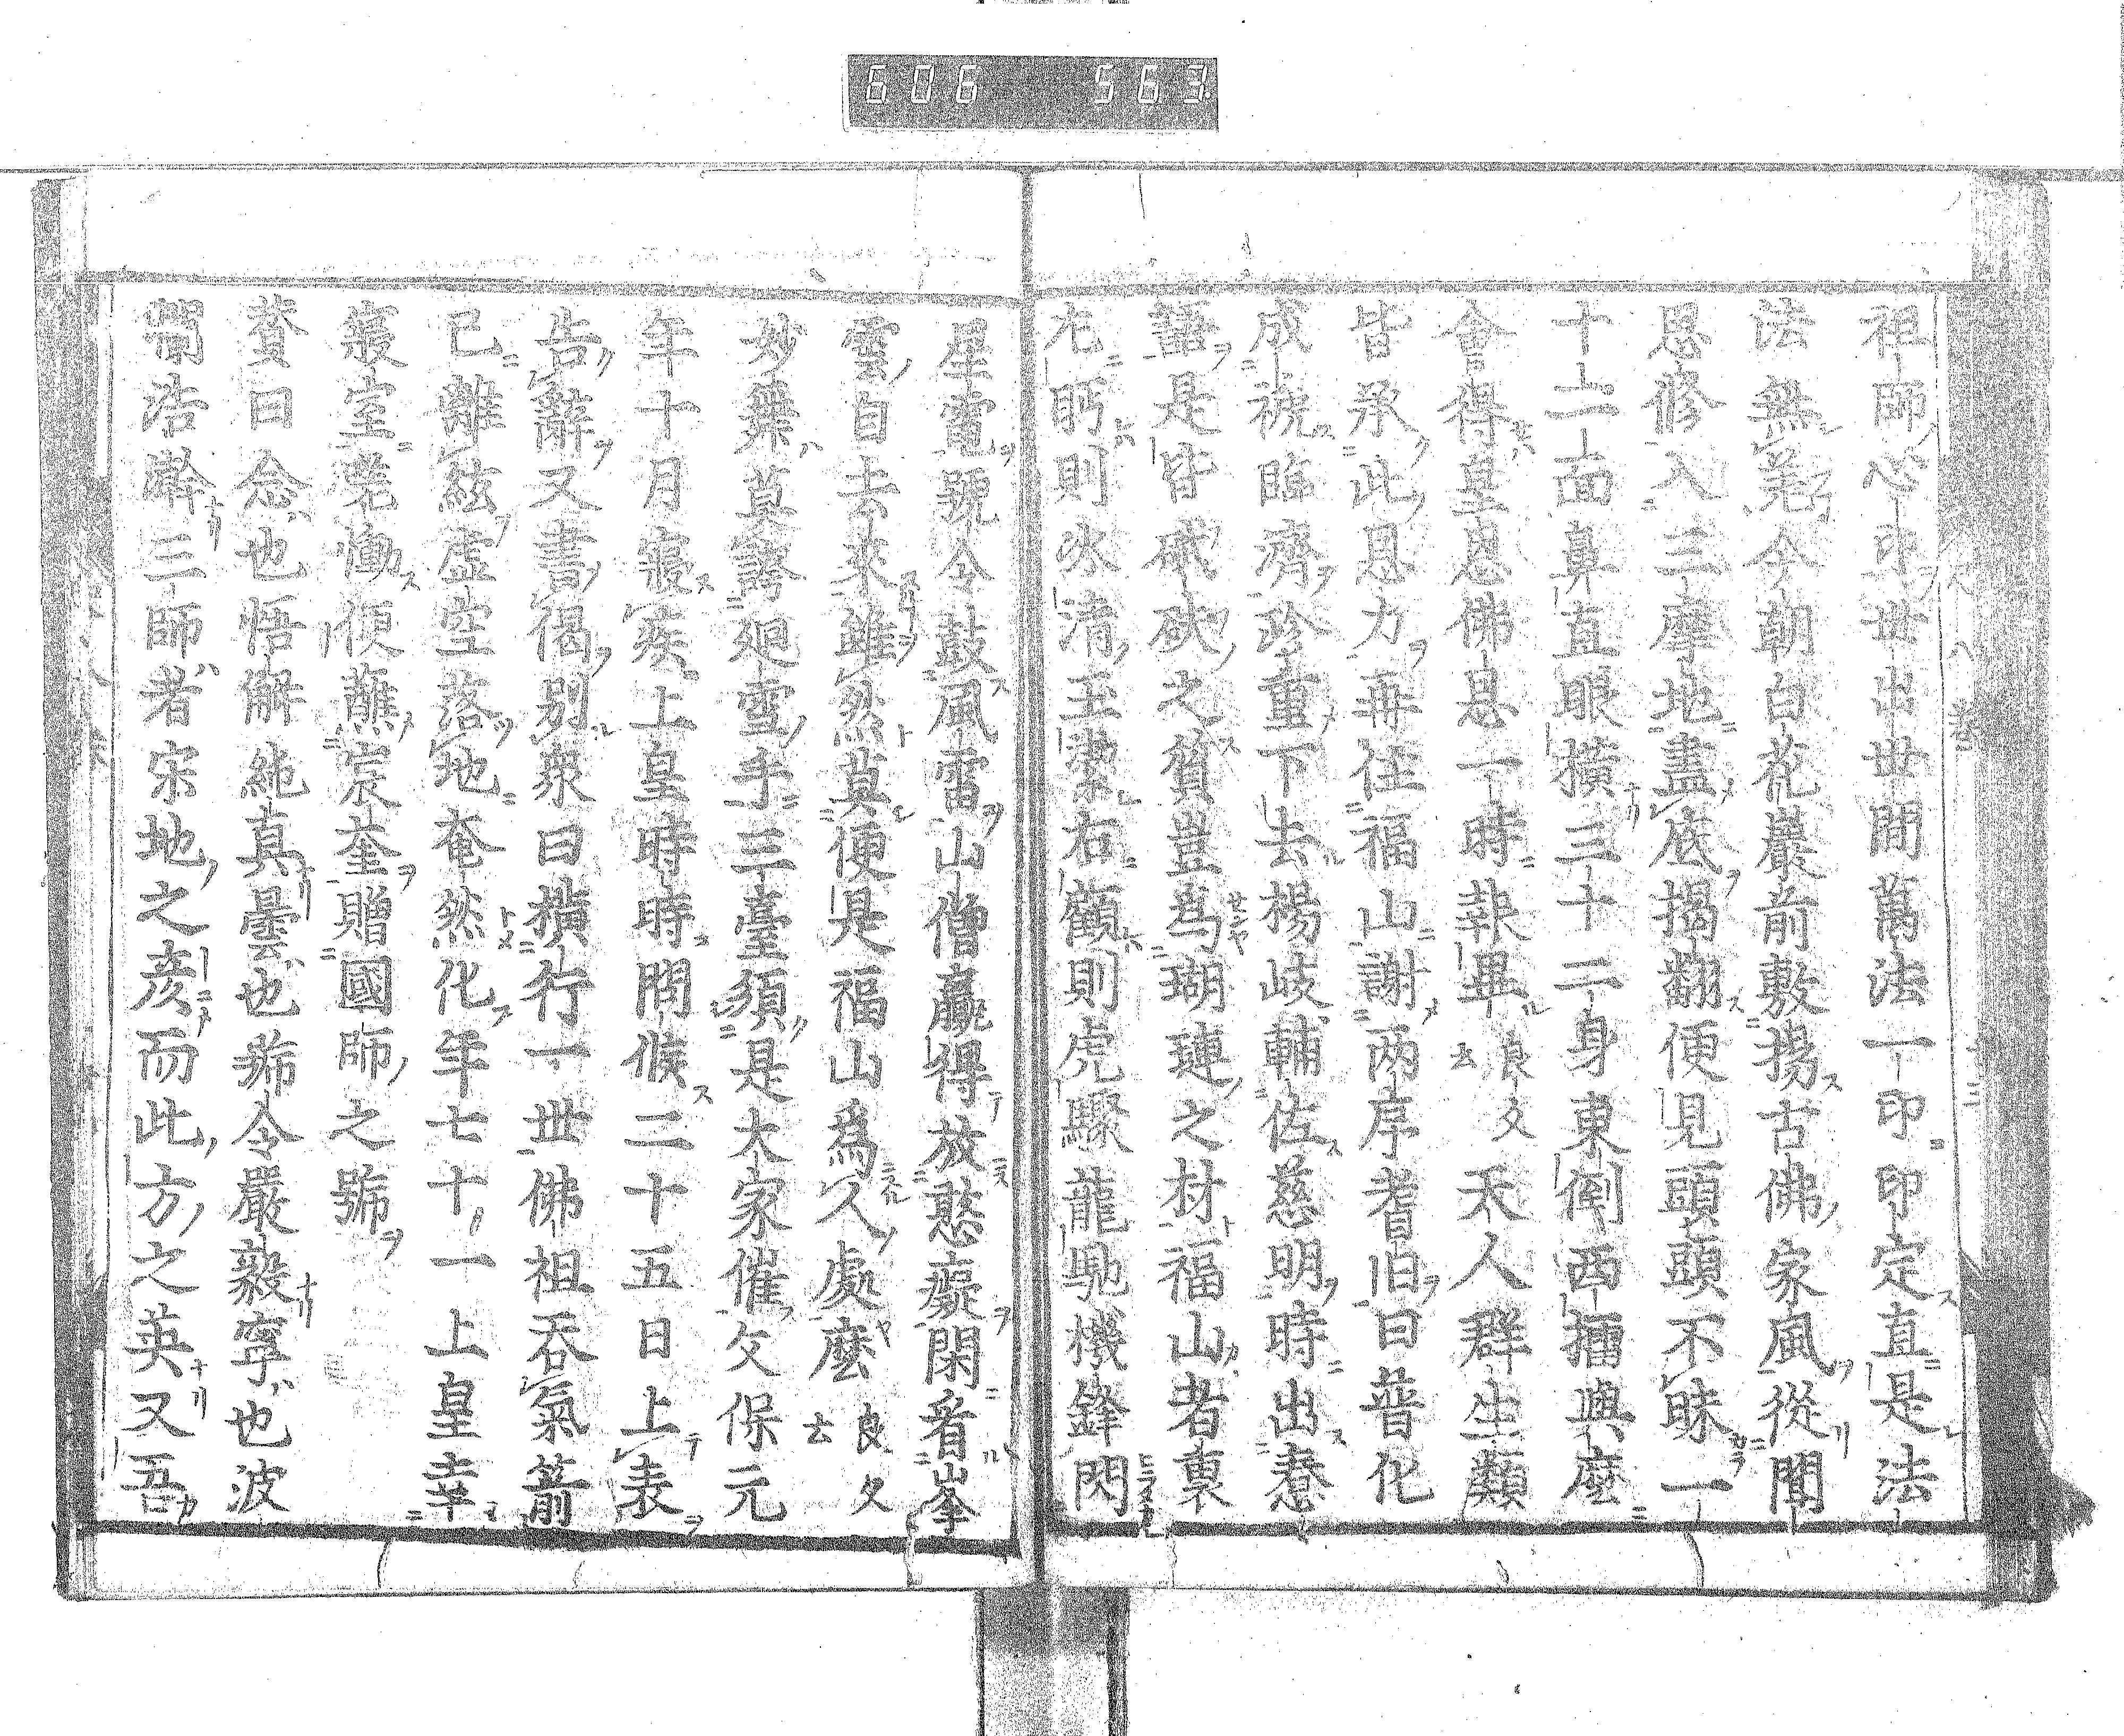 606 563
祖師心印世出世間萬法一印印定直是法
法無差今朝白花巖前敷揚古佛家風從聞
思修入三摩地盡底揭翻便見頭頭不昧一
十二面鼻直眼橫三十二身東倒西擂與麼
會得皇恩佛恩一時報畢良久云天人群生類
皆承此恩力再徃福山謝兩序耆旧曰普化
成褫臨濟珍重下去楊岐輔佐慈明時出憃
語是皆碔砆之質豈爲瑚璉之材福山者裏
左眄則氷清玉潔右顧則虎驟龍馳機鋒閃
星電號令鼓風雷山僧贏得放憨癡閑看峯
雲自去來雖然莫便是福山爲人處麼良久云
妙舞莫誇廻雪手三臺須是大家催文保元
年十月寢疾上皇時時問候二十五日上表
告辭又書偈別衆曰橫行一世佛祖吞氣箭
已離絃虛空落地奄然化年七十一上皇幸
寢室荒慟便蘸宸奎贈國師之號
贊曰念也悟解純眞曇也號令嚴毅寧也波
瀾浩瀚三師者宋地之彦而此方之英又吾